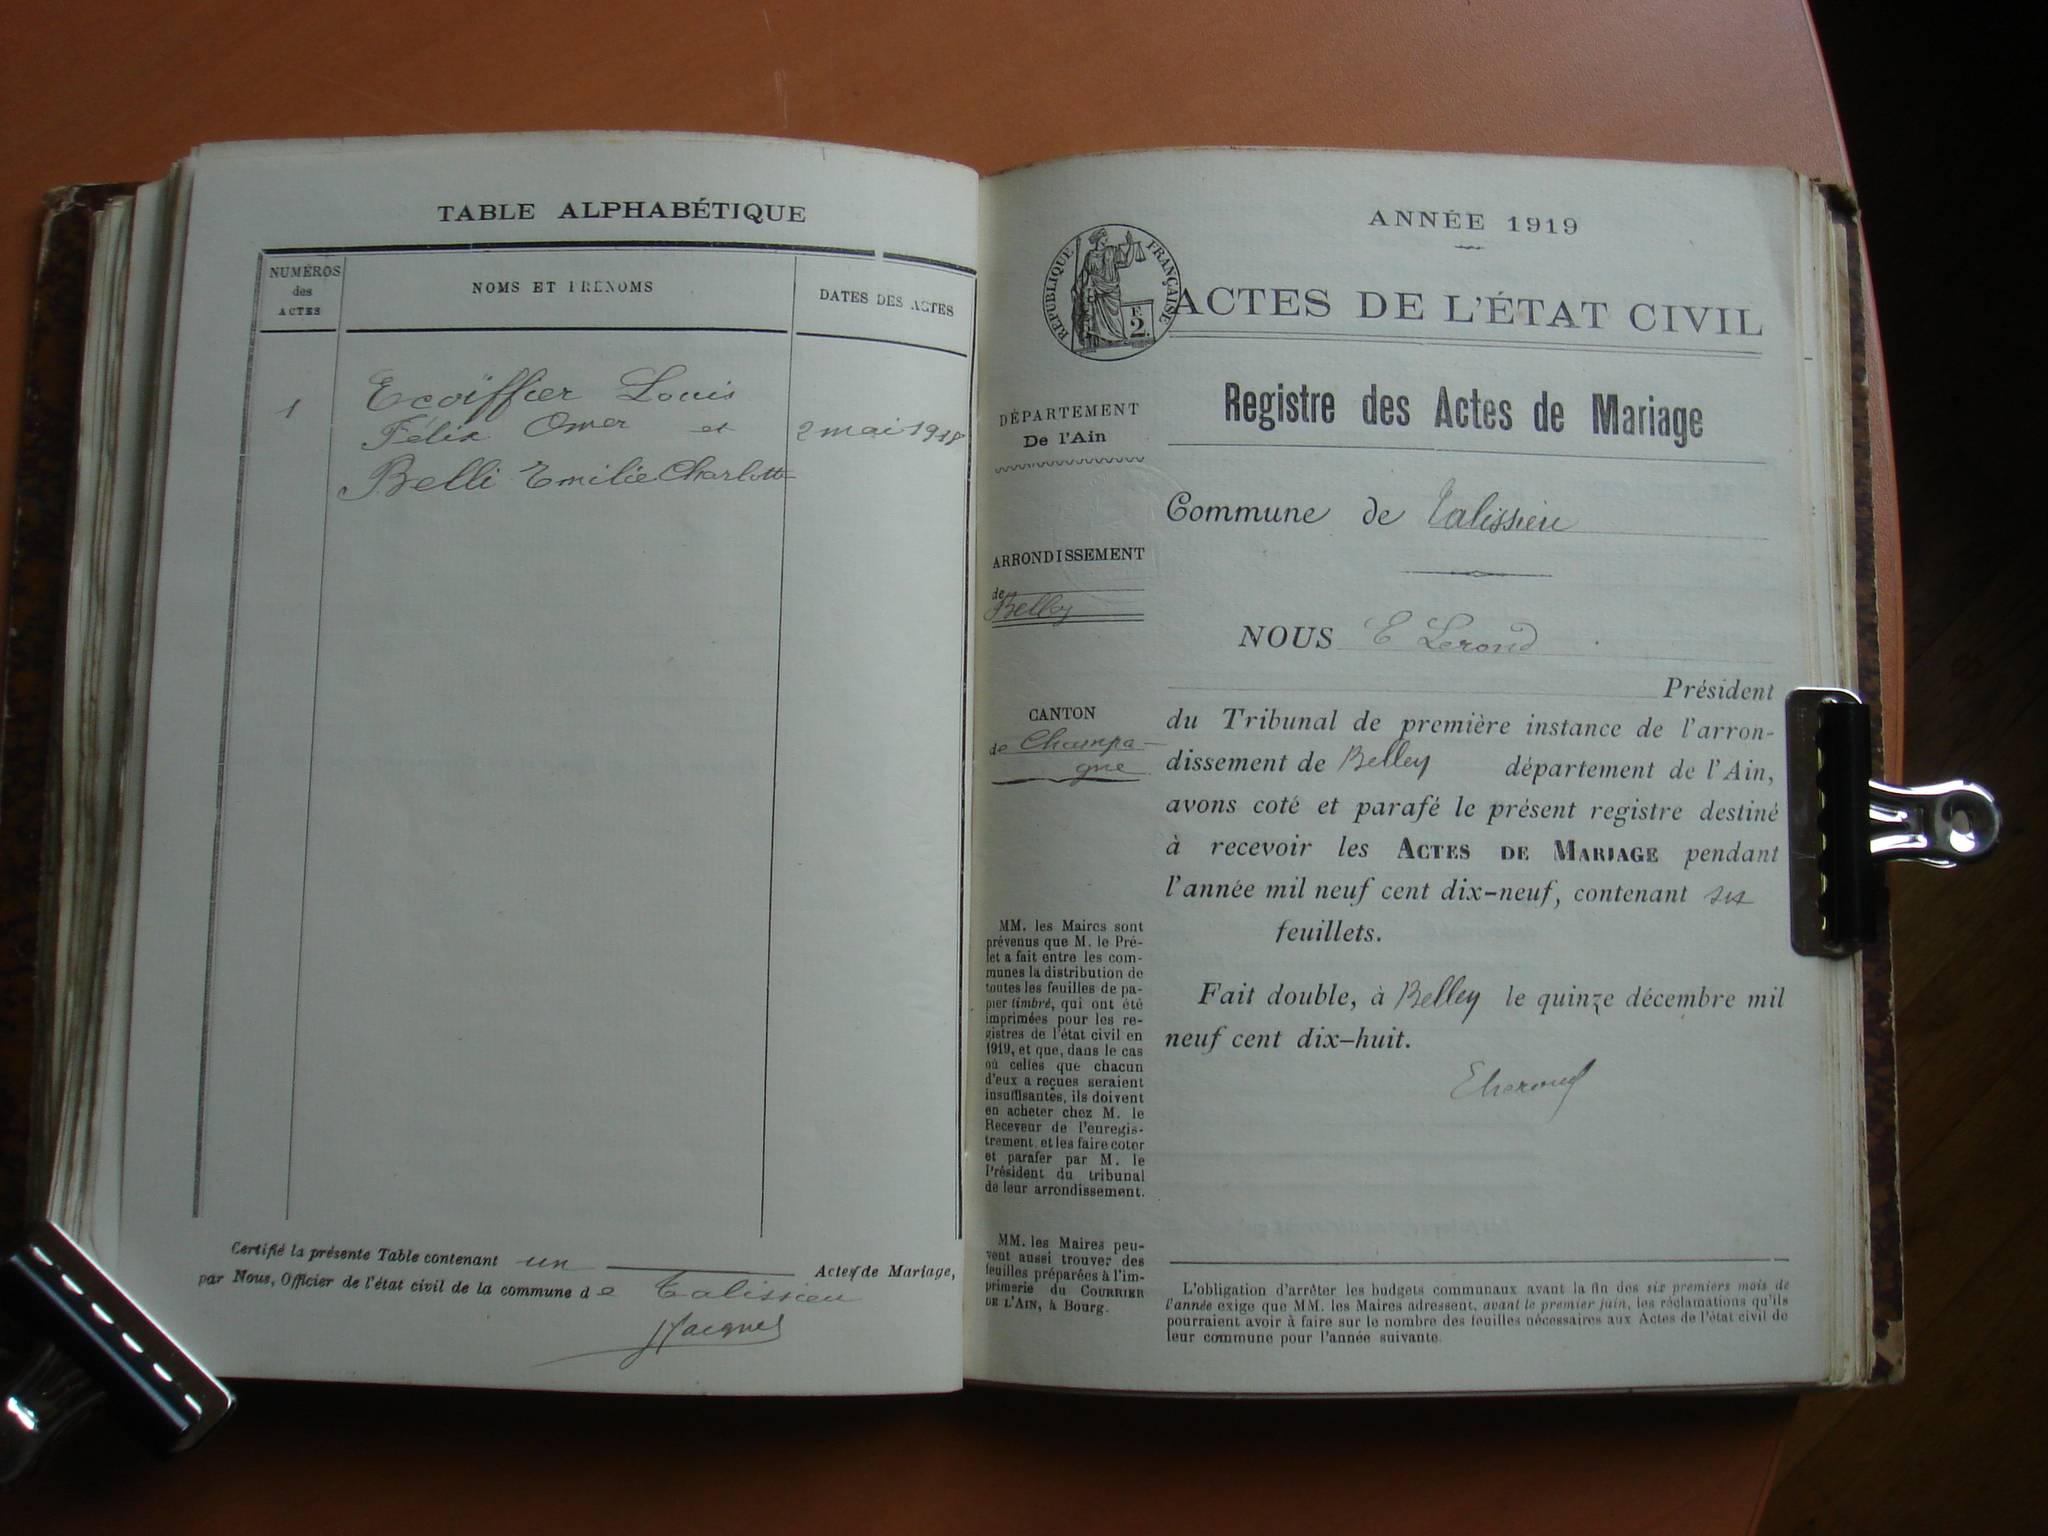 TABLE ALPHABÉTIQUE
NUMÉROS
des
ACTES
NOMS ET PRÉNOMS
DATES DES ACTES
1
Ecoiffier Louis
Félix Omer et
Belli Emilie Charlotte
2 mai 1918
Certifié la présente Table contenant un Actes de Mariage,
par Nous, Officier de l'état civil de la commune de Talissieu
ANNÉE 1919
RÉPUBLIQUE FRANÇAISE
F.
2.
ACTES DE L'ÉTAT CIVIL
Registre des Actes de Mariage
DÉPARTEMENT
De l'Ain
Commune de Talissieu
ARRONDISSEMENT
de
Belley
CANTON
de Champa-
gne
MM. les Maires sont
prévenus que M. le Pré-
fet a fait entre les com-
munes la distribution de
toutes les feuilles de pa-
pier timbré, qui ont été
imprimées pour les re-
gistres de l'état civil en
1919, et que, dans le cas
où celles que chacun
d'eux a reçues seraient
insuffisantes, ils doivent
en acheter chez M. le
Receveur de l'enregis-
trement, et les faire coter
et parafer par M. le
Président du tribunal
de leur arrondissement.
MM. les Maires peu-
vent aussi trouver des
feuilles préparées à l'im-
primerie du COURRIER
DE L'AIN, à Bourg.
NOUS E Lerond
Président
du Tribunal de première instance de l'arron-
dissement de Belley département de l'Ain,
avons coté et parafé le présent registre destiné
à recevoir les ACTES DE MARIAGE pendant
l'année mil neuf cent dix-neuf, contenant six
feuillets.
Fait double, à Belley le quinze décembre mil
neuf cent dix-huit.
L'obligation d'arrêter les budgets communaux avant la fin des six premiers mois de
l'année exige que MM. les Maires adressent, avant le premier juin, les réclamations qu'ils
pourraient avoir à faire sur le nombre des feuilles nécessaires aux Actes de l'état civil de
leur commune pour l'année suivante.